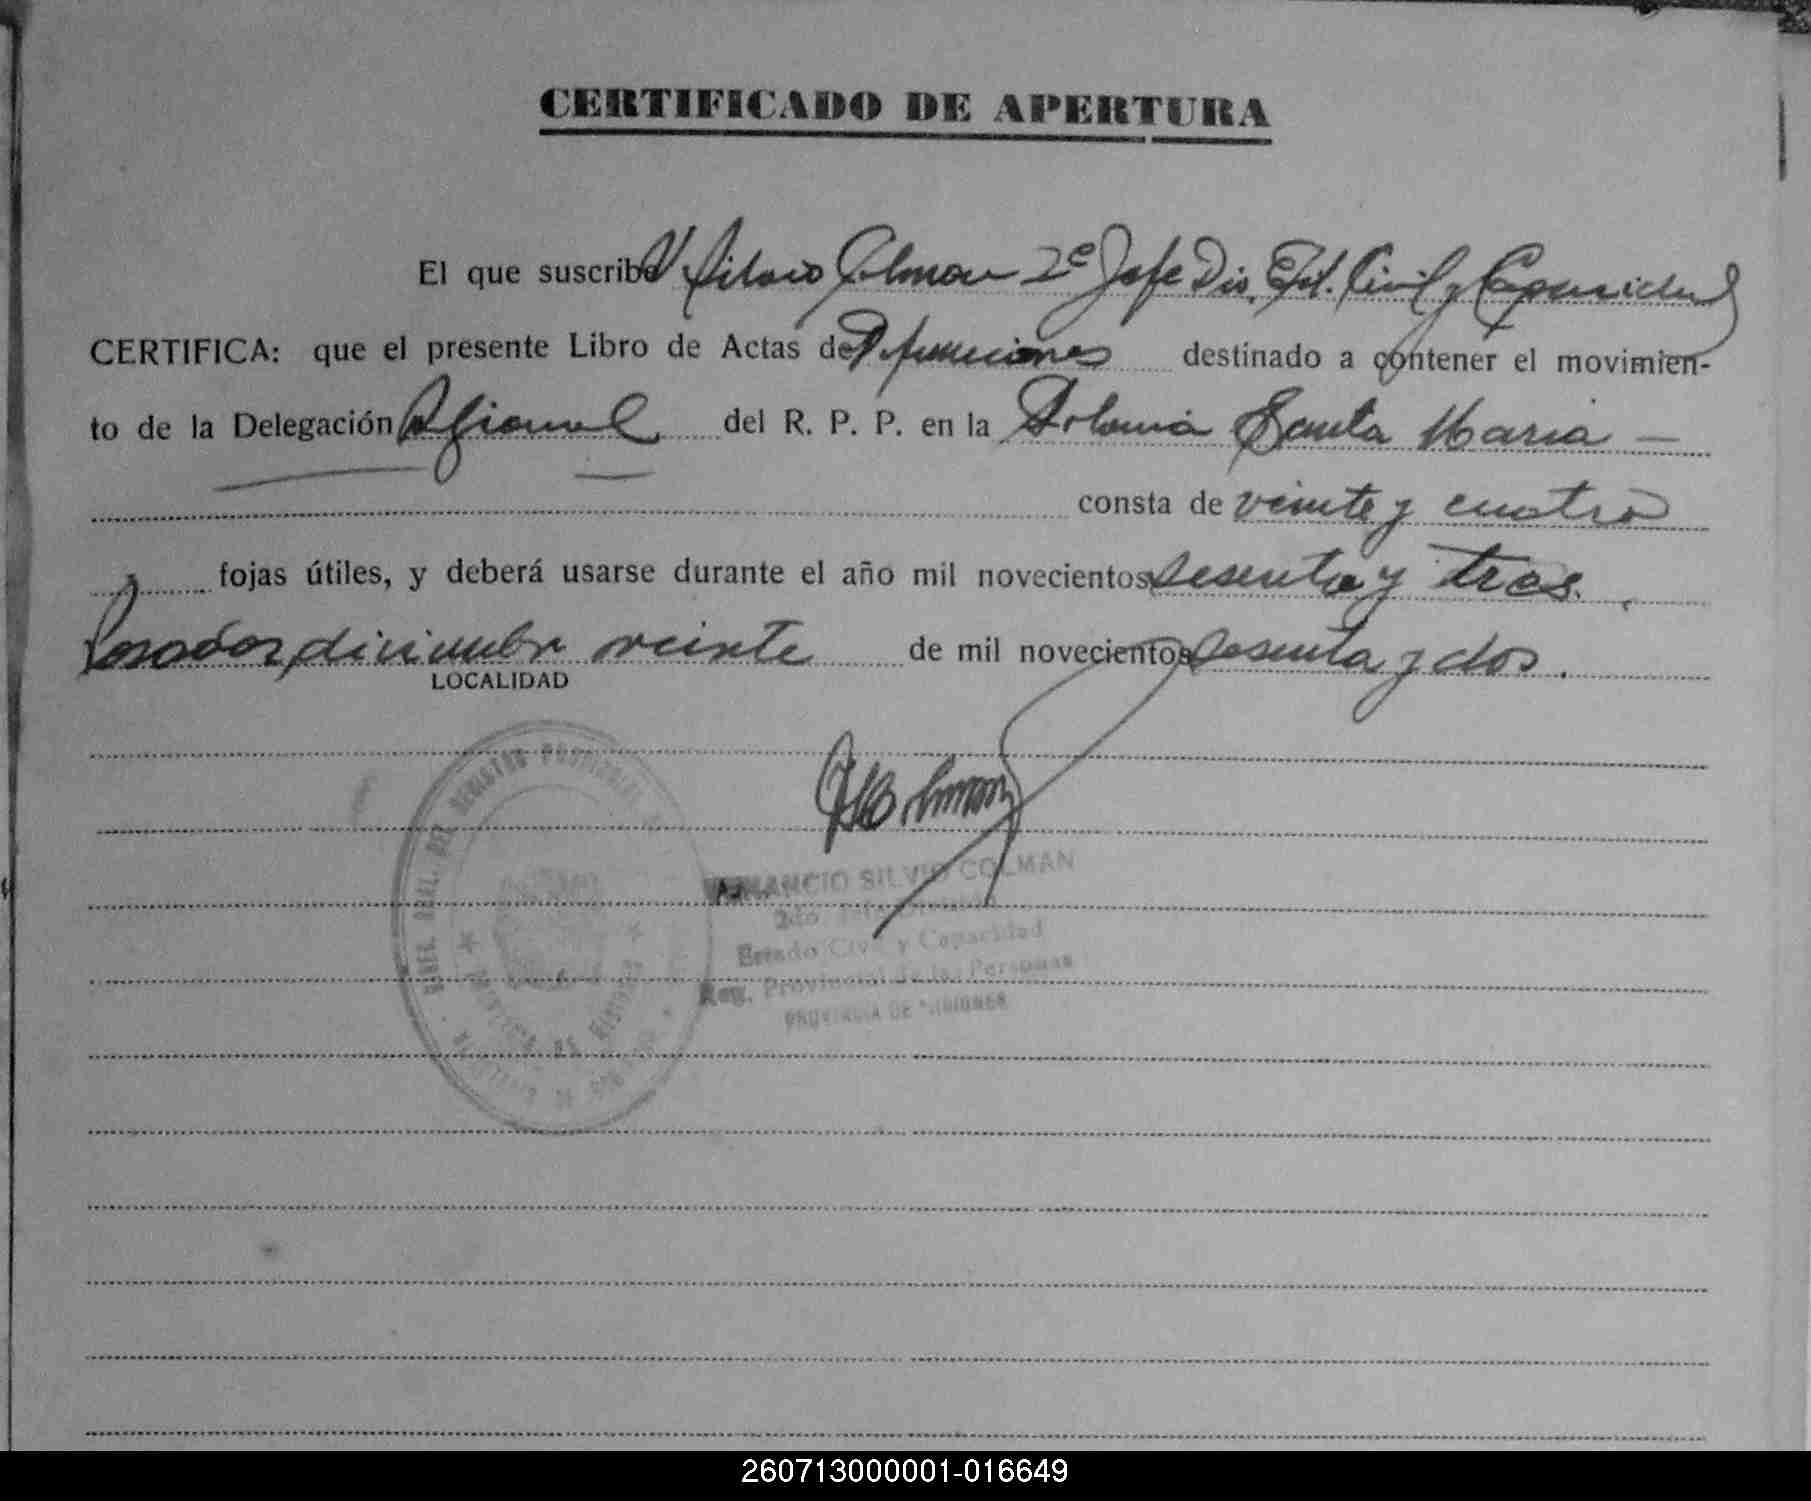 CERTIFICADO DE APERTURA
El que suscribe V Silvio Colman 2º Jefe Div. Est. Civil y Capacidad
CERTIFICA: que el presente Libro de Actas de Defunciones destinado a contener el movimien-
to de la Delegación del R. P. P. en la Colonia Santa Maria —
consta de veinte y cuatro
fojas útiles, y deberá usarse durante el año mil novecientos sesenta y tres.
Posadas, diciembre veinte de mil novecientos sesenta y dos.
LOCALIDAD
SILVIO COLMAN
2do. Jefe División
Estado Civil y Capacidad
Reg. Provincial de las Personas
PROVINCIA DE MISIONES
260713000001-016649